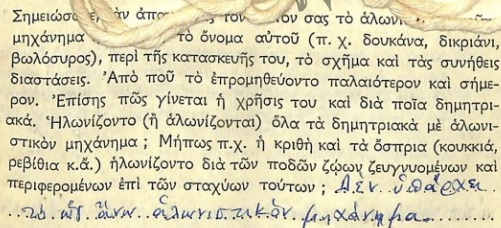 Σημειώσατε, ἐὰν τὸν σας τὸ
μηχάνημα τὸ ὄνομα αὐτοῦ (π. χ. δουκάνα, δικριάνι,
βωλόσυρος), περὶ τῆς κατασκευῆς του, τὸ σχῆμα καὶ τὰς συνήθεις
διαστάσεις. Ἀπὸ ποῦ τὸ ἐπρομηθεύοντο παλαιότερον καὶ σήμε-
ρον. Ἐπίσης πῶς γίνεται ἡ χρῆσις του καὶ διὰ ποῖα δημητρι-
ακά. Ἡλωνίζοντο (ἢ ἁλωνίζονται) ὅλα τὰ δημητριακὰ μὲ ἁλωνι-
στικὸν μηχάνημα ; Μήπως π.χ. ἡ κριθὴ καὶ τὰ ὄσπρια (κουκκιά,
ρεβίθια κ.ἄ.) ἡλωνίζοντο διὰ τῶν ποδῶν ζῴων ζευγνυομένων καὶ
περιφερομένων ἐπὶ τῶν σταχύων τούτων ; Δὲν ὑπάρχει
τὸ ὡς ἄνω ἁλωνιστικὸν μηχάνημα